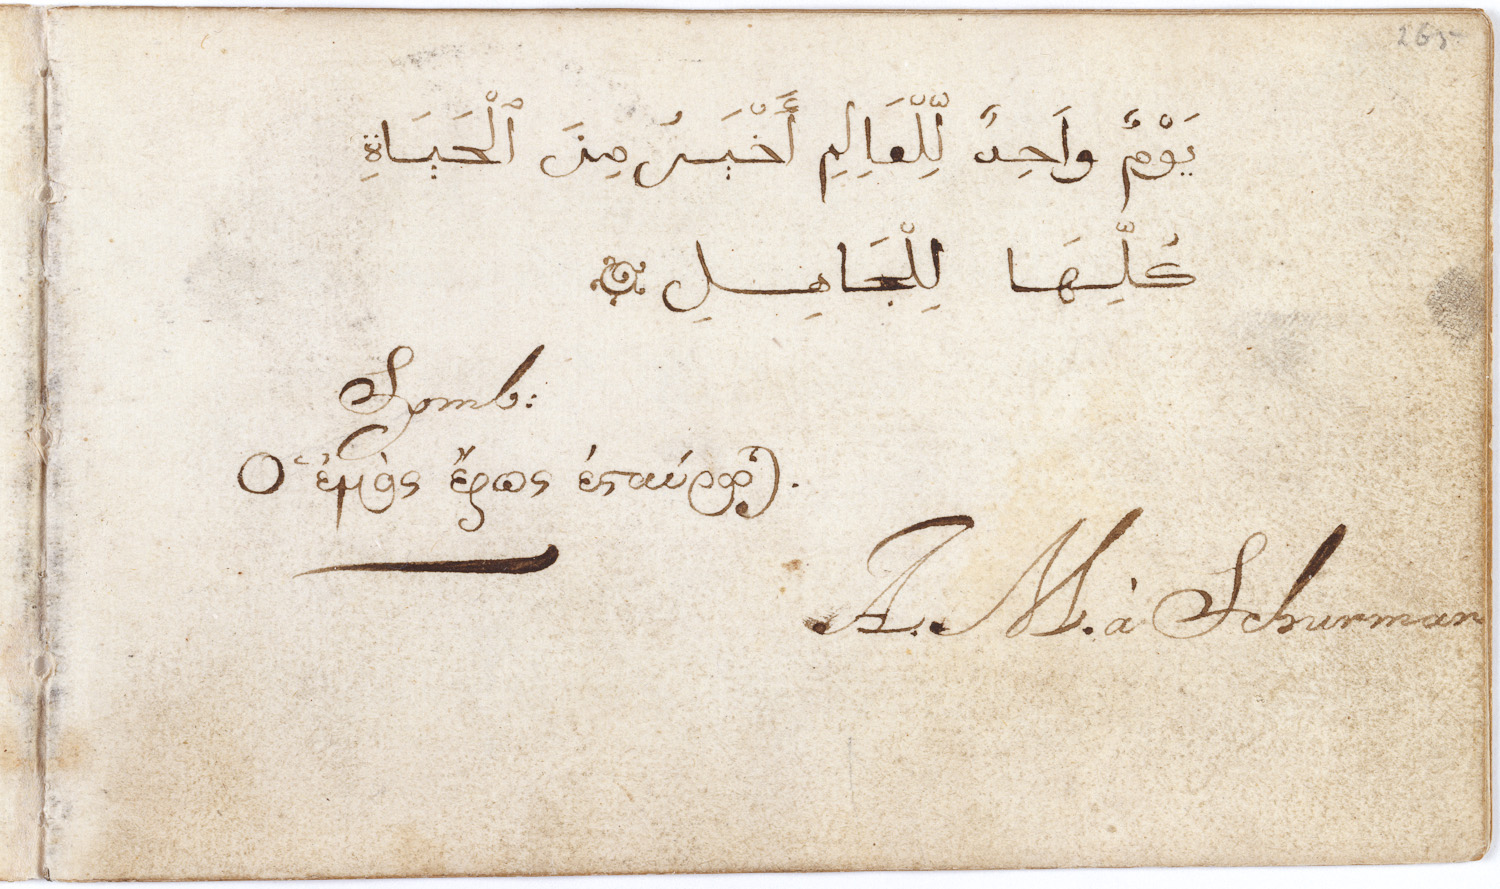 265
يَوْمٌ واَحِدٌ لِّلْعَالِمِ أَخْيَرُ مِنَ ٱلْحَيَاةِ
كُلِّهَا لِلْجَاهِلِ
Symb:
Ὁ ἐμὸς ἔρως ἐσταύρω).
A. M. à Schurman